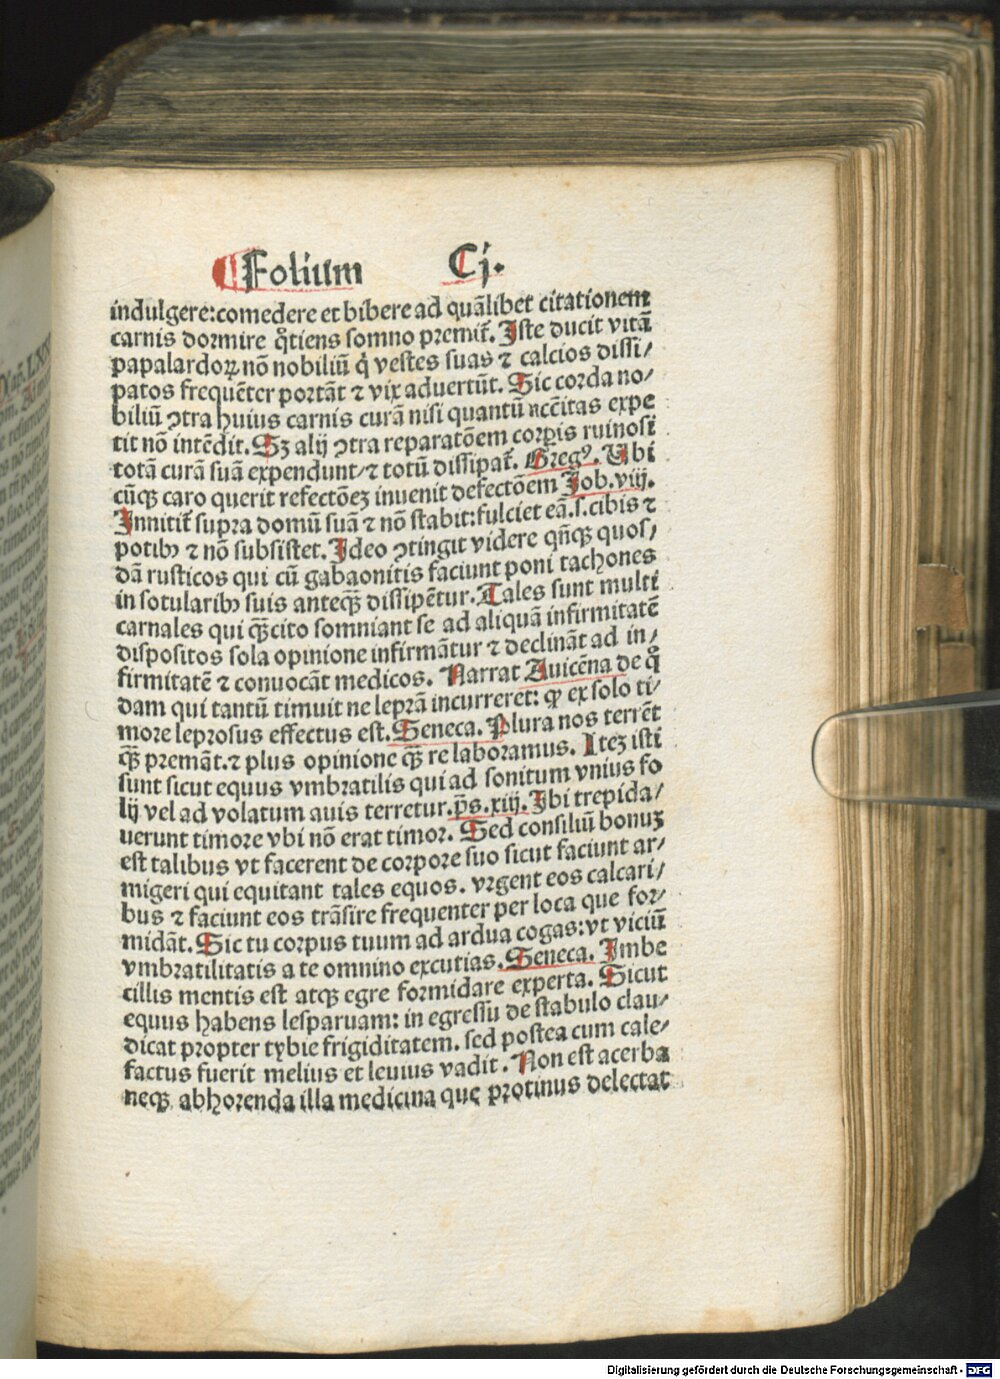 Folium Cj.
indulgere:comedere et bibere ad quālibet citationem
carnis dormire q̄tiens somno premit̄. Iste ducit vitā
papalardoꝝ nō nobiliū q̇ vestes suas ⁊ calcios dissi/
patos frequēter portāt ⁊ vix aduertūt. Sic corda no/
biliū ꝯtra huius carnis curā nisi quantū nc̄citas expe
tit nō intēdit. Sꝫ alij ꝯtra reparatōem corꝑis ruinosi
totā curā suā expendunt/⁊ totū dissipat̄. Gregꝰ. Ubi
cūqꝫ caro querit refectōeꝫ inuenit defectōem Job.viij.
Innitit̄ supra domū suā ⁊ nō stabit:fulciet eā.s.cibis ⁊
potibꝫ ⁊ nō subsistet. Ideo ꝯtingit videre qn̄qꝫ quos/
dā rusticos qui cū gabaonitis faciunt poni tachones
in sotularibꝫ suis anteqꝫ̄ dissipētur. Tales sunt multi
carnales qui qꝫ̄cito somniant se ad aliquā infirmitatē
dispositos sola opinione infirmātur ⁊ declināt ad in/
firmitatē ⁊ conuocāt medicos. Narrat Auicēna de q̄
dam qui tantū timuit ne leprā incurreret: ꝙ ex solo ti/
more leprosus effectus est. Seneca. Plura nos terrēt
qꝫ̄ premāt.⁊ plus opinione qꝫ̄ re laboramus. Iteꝫ isti
sunt sicut equus vmbratilis qui ad sonitum vnius fo
lij vel ad volatum auis terretur.p̄s.xiij. Ibi trepida/
uerunt timore vbi nō erat timor. Sed consiliū bonuꝫ
est talibus vt facerent de corpore suo sicut faciunt ar/
migeri qui equitant tales equos. vrgent eos calcari/
bus ⁊ faciunt eos trāsire frequenter per loca que for/
midāt. Sic tu corpus tuum ad ardua cogas:vt viciū
vmbratilitatis a te omnino excutias. Seneca. Imbe
cillis mentis est atqꝫ egre formidare experta. Sicut
equus habens lesparuam: in egressu de stabulo clau/
dicat propter tybie frigiditatem. sed postea cum cale/
factus fuerit melius et leuius vadit. Non est acerba
neqꝫ abhorenda illa medicina que protinus delectat
Digitalisierung gefördert durch die Deutsche Forschungsgemeinschaft - DFG